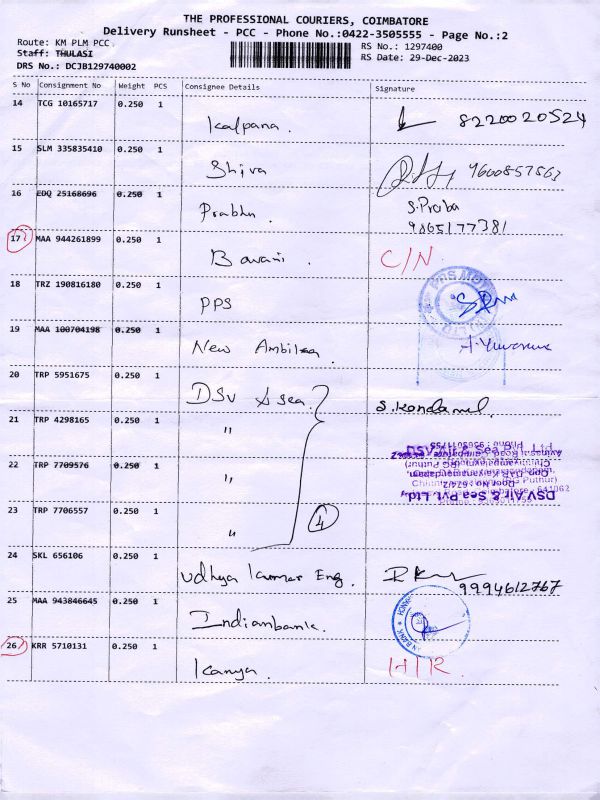 THE PROFESSIONAL COURIERS, COIMBATORE
Delivery Runsheet - PCC - Phone No.:0422-3505555 - Page No.:2
Route: KM PLM PCC
Staff: THULASI
DRS No.: DCJB129740002
RS No.: 1297400
RS Date: 29-Dec-2023
S No Consignment No Weight PCS Consignee Details Signature
14 TCG 10165717 0.250 1 Kalpana. 8220020524
15 SLM 335835410 0.250 1 Shiva 9600857563
16 EDQ 25168696 0.250 1 Prabhu. S.Praba
9865177381
17 MAA 944261899 0.250 1 Bavani. C/N
18 TRZ 190816180 0.250 1 PPS
19 MAA 100704198 0.250 1 New
20 TRP 5951675 0.250 1 DSV A sea.
21 TRP 4298165 0.250 1 "
22 TRP 7709576 0.250 1 "
23 TRP 7706557 0.250 1 " 4
DSV Air & Sea Pvt. Ltd
24 SKL 656106 0.250 1 Udhya Kumar Eng. 9994612767
25 MAA 943846645 0.250 1 Indianbank.
26 KRR 5710131 0.250 1 Kanya.